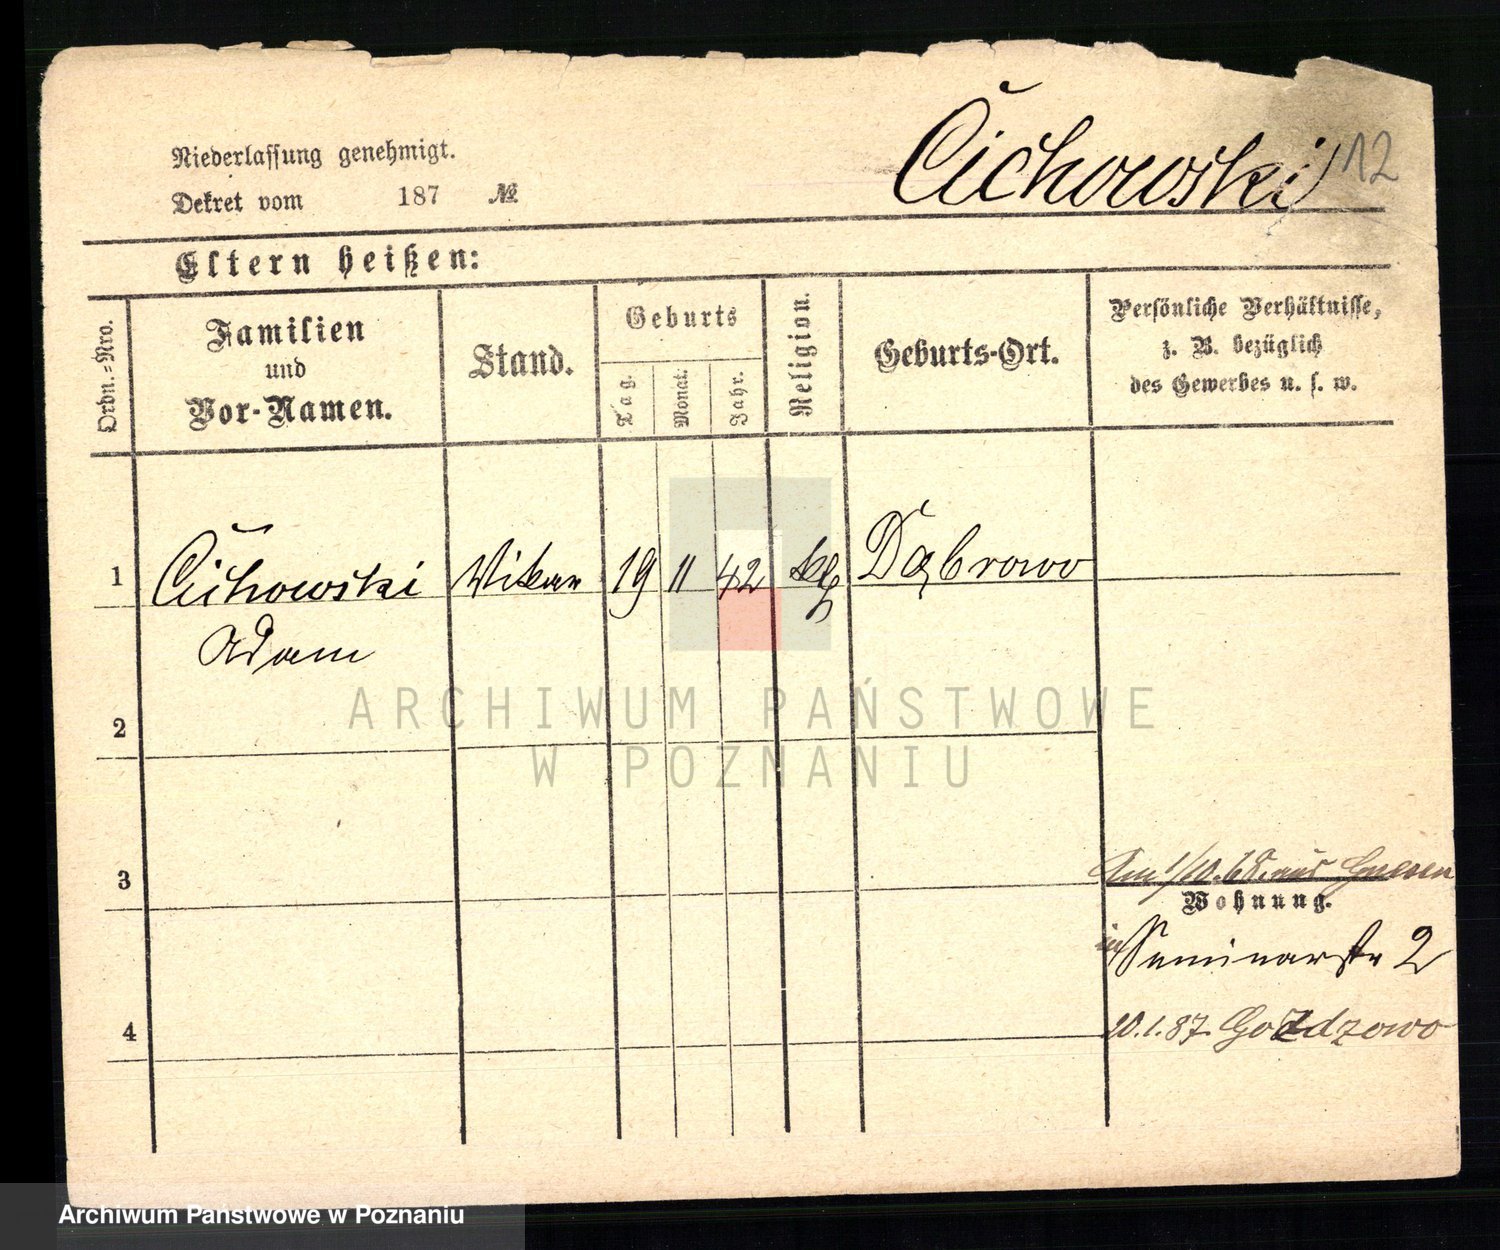 Cichowski 12
Niederlassung genehmigt.
Dekret vom 187 №
Eltern heißen:
Ordn.=Nro.
Familien
und
Vor-Namen.
Stand.
Geburts
Tag.
Monat.
Jahr.
Religion.
Geburts-Ort.
Persönliche Verhältnisse,
z. B. bezüglich
des Gewerbes u. s. w.
1 Cichowski Vikar 19 11 42 kth Dąbrowo
Adam
2
ARCHIWUM PAŃSTWOWE
W POZNANIU
3
Am 1/10. 68. aus Gnesen
Wohnung.
Seminarstr 2
4
20.1.87. Gozdzowo
Archiwum Państwowe w Poznaniu